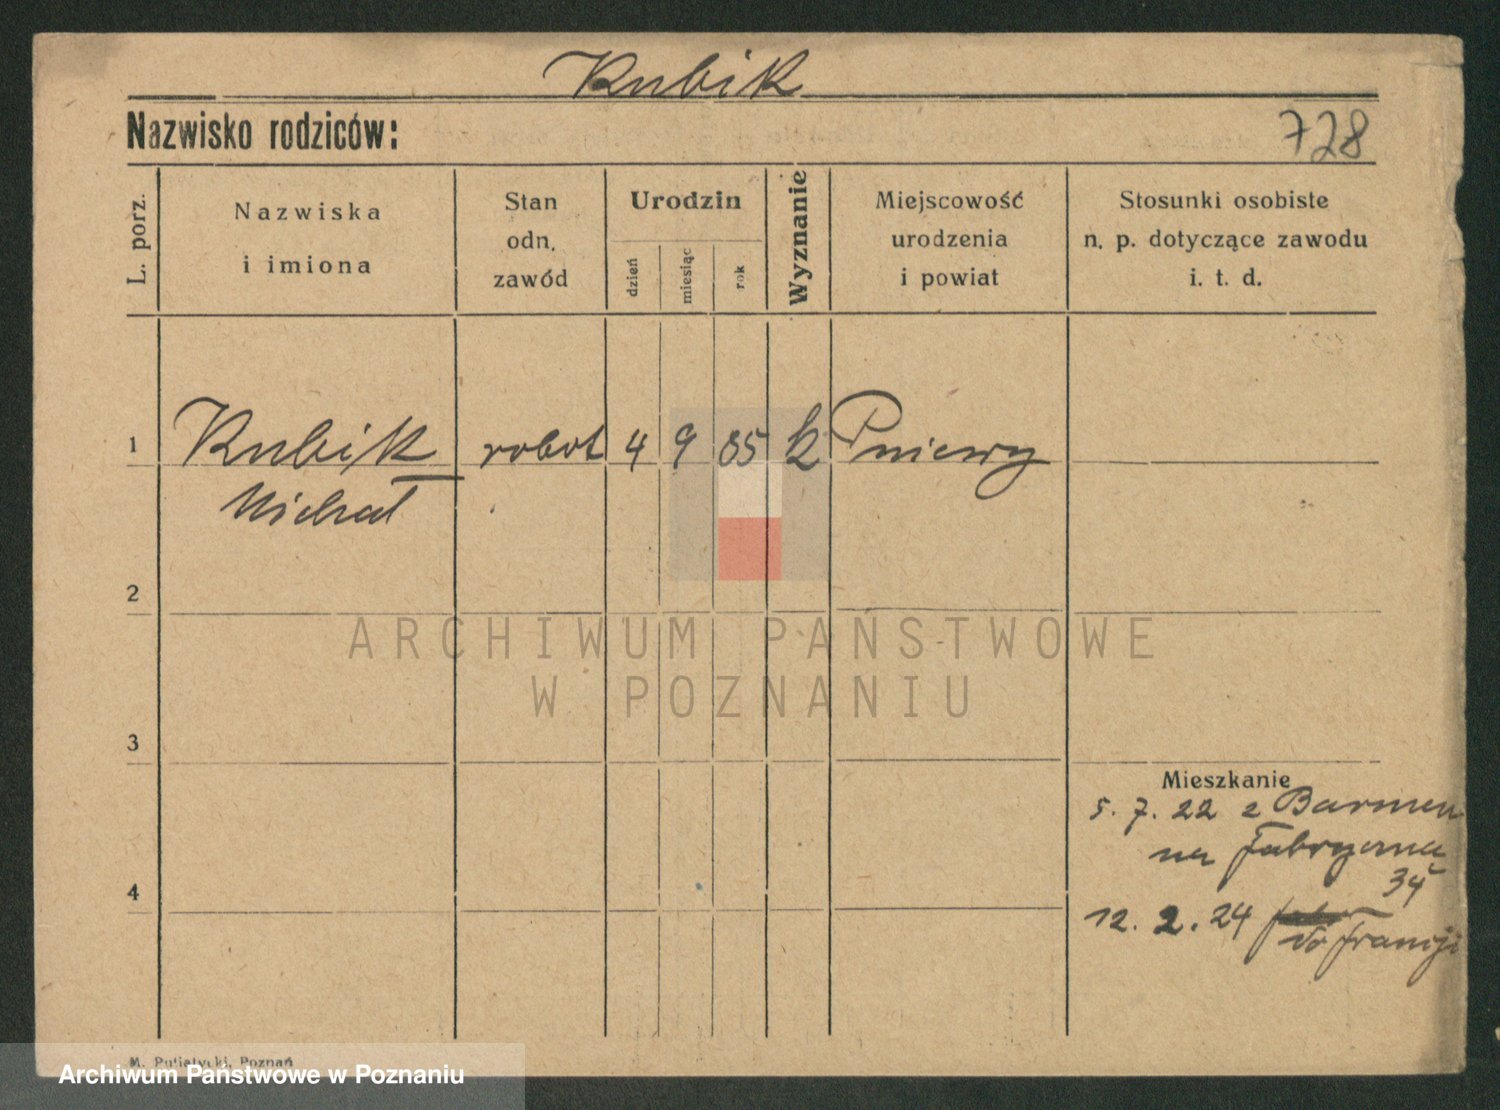 Kubik
Nazwisko rodziców:
728
L. porz.
Nazwiska
i imiona
Stan
odn.
zawód
Urodzin
dzień
miesiąc
rok
Wyznanie
Miejscowość
urodzenia
i powiat
Stosunki osobiste
n. p. dotyczące zawodu
i. t. d.
1
Kubik
Michał
robot
4
9
85
k
Pniewy
2
ARCHIWUM PAŃSTWOWE
W POZNANIU
3
Mieszkanie
5. 7. 22 z Barmen
na Fabryczna
34
4
12. 2. 24
do Francji
M. Putiatycki, Poznań
Archiwum Państwowe w Poznaniu